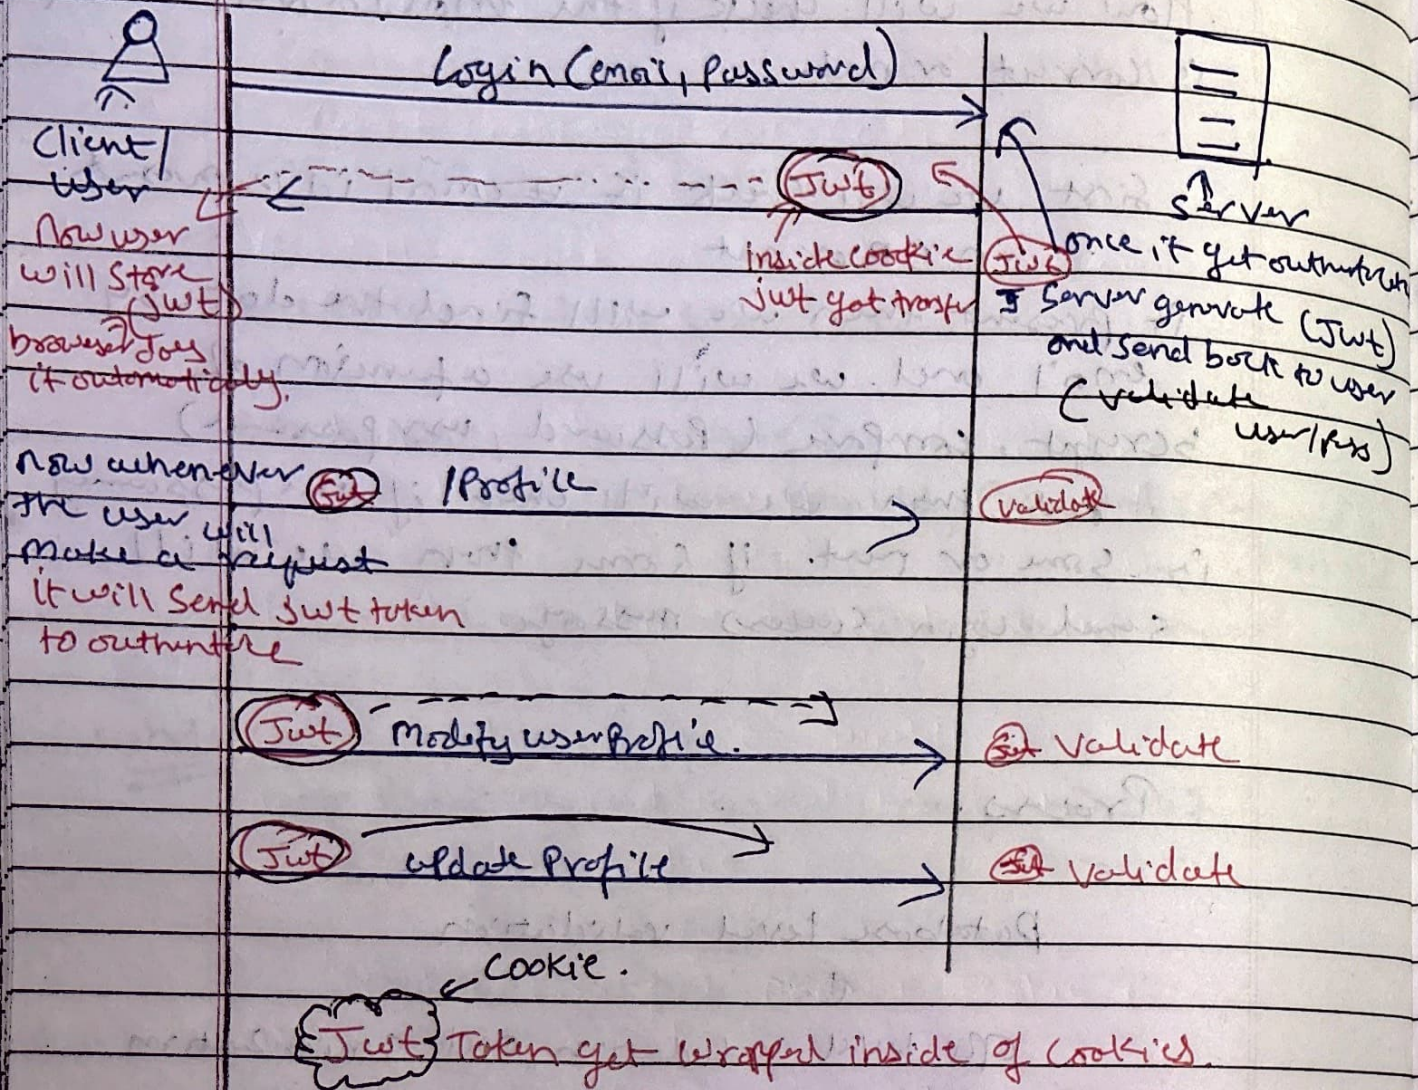 Login (email, password)
Client/
User
Jwt
Server
now user
will store
(jwt)
browser does
it automatically.
inside cookie
jwt get transfer
Jwt
once it get
server generate (Jwt)
and send back to user
(validate
user/pass)
now whenever
the user will
make a request
it will send jwt token
to
Jwt
/Profile
validate
Jwt
Modify user Profile.
Validate
Jwt
update Profile
Validate
Cookie.
Jwt Token get wrapped inside of cookies.